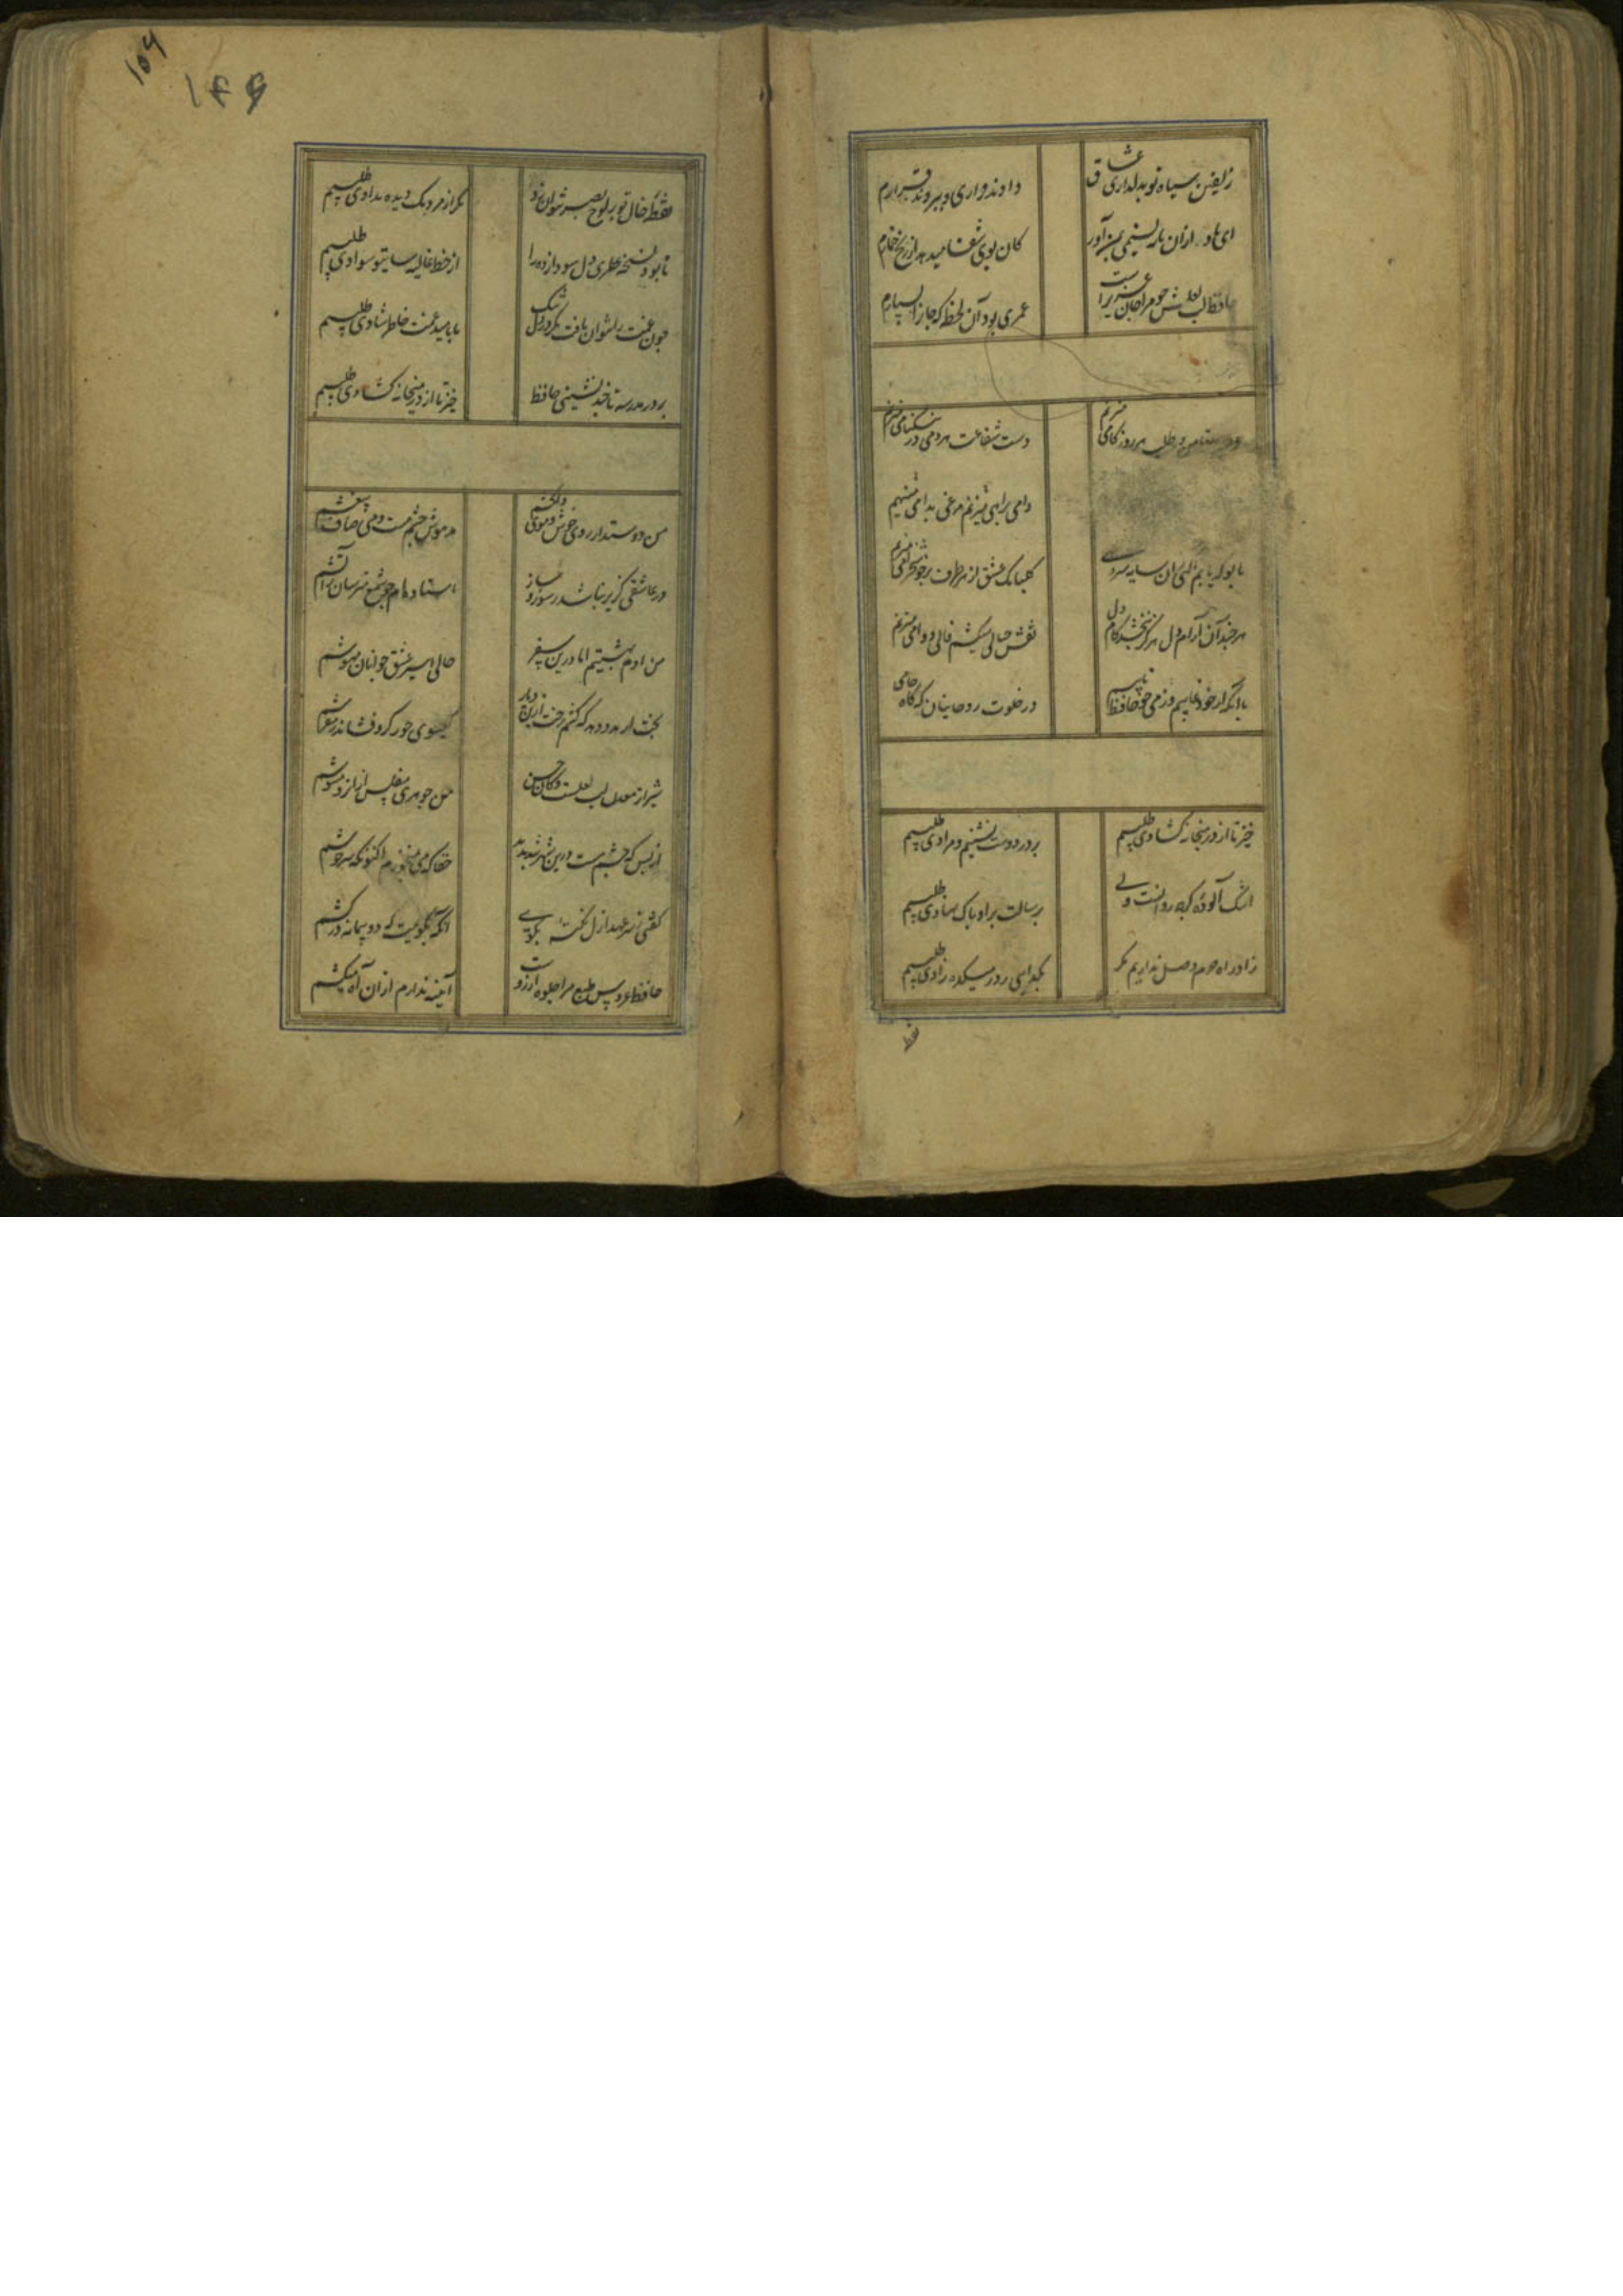 زلفین سیاه تو بدلداری عشاق
دادند قراری و ببردند قرارم
ای باد از آن باده نسیمی بمن آور
کان بوی شفا میدهد از رنج خمارم
حافظ لب لعلش چو مرا جان عزیزست
عمری بود آن لحظه که جانرا بسپارم
هر روز گامی میزنم
دست شفاعت هر دمی در نیکنامی میزنم
دامی براهی مینهم مرغی بدامی میزنم
تا بو که یابم آگهی از آن سایه سرو سهی
گلبانگ عشق از هر طرف بر خوشخرامی میزنم
هر چند آن آرام دل هرگز نبخشد کام دل
نقش خیالی میکشم فالی دوامی میزنم
با آنکه از خود غایبم وز می چو حافظ تایبم
در خلوت روحانیان گه گاه جامی
خیز تا از در میخانه گشادی طلبیم
بر در دوست نشینیم و مرادی طلبیم
اشک آلوده ما گرچه روانست ولی
برسالت بر او پاک نهادی طلبیم
زاد راه حرم وصل نداریم مگر
بگدایی ز در میکده زادی طلبیم
نقطه
۱۴۶
۱۵۶
نقطه خال تو بر لوح بصر نتوان زد
مگر از مردمک دیده مدادی طلبیم
تا بود نسخه عطری دل سودازده را
از خط غالیه سای تو سوادی طلبیم
چون غمت را نتوان یافت مگر در دل تنگ
ما بامید غمت خاطر شادی طلبیم
بر در مدرسه تا چند نشینی حافظ
خیز تا از در میخانه گشادی طلبیم
من دوستدار روی خوش و موی دلکشم
مدهوش چشم مست و می صاف بیغشم
در عاشقی گزیر نباشد ز سوز و ساز
استاده‌ام چو شمع مترسان ز آتشم
من آدم بهشتیم اما درین سفر
حالی اسیر عشق جوانان مهوشم
بخت ار مدد دهد که کشم رخت ازین دیار
گیسوی حور گرد فشاند ز مفرشم
شیراز معدن لب لعلست و کان حسن
من جوهری مفلس از آنرو مشوشم
از بس که چشم مست درین شهر دیده‌ام
حقا که می نمیخورم اکنون و سرخوشم
گفتی ز سر عهد ازل نکته بگوی
آنگه بگویمت که دو پیمانه درکشم
حافظ عروس طبع مرا جلوه آرزوست
آیینه ندارم از آن آه میکشم